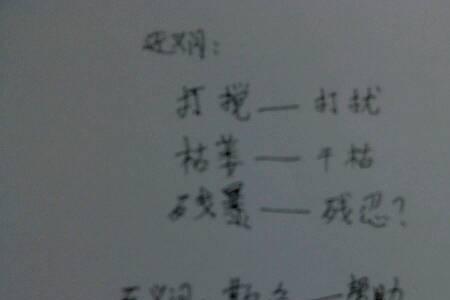 近义词:
打搅——打扰
枯萎——干枯
残暴——残忍?
反义词: ——帮助